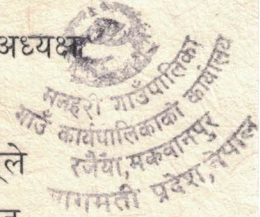 अध्यक्ष
मनहरी गाउँपालिका
गाउँ कार्यपालिकाको कार्यालय
रजैया, मकवानपुर
ले
बागमती प्रदेश, नेपाल